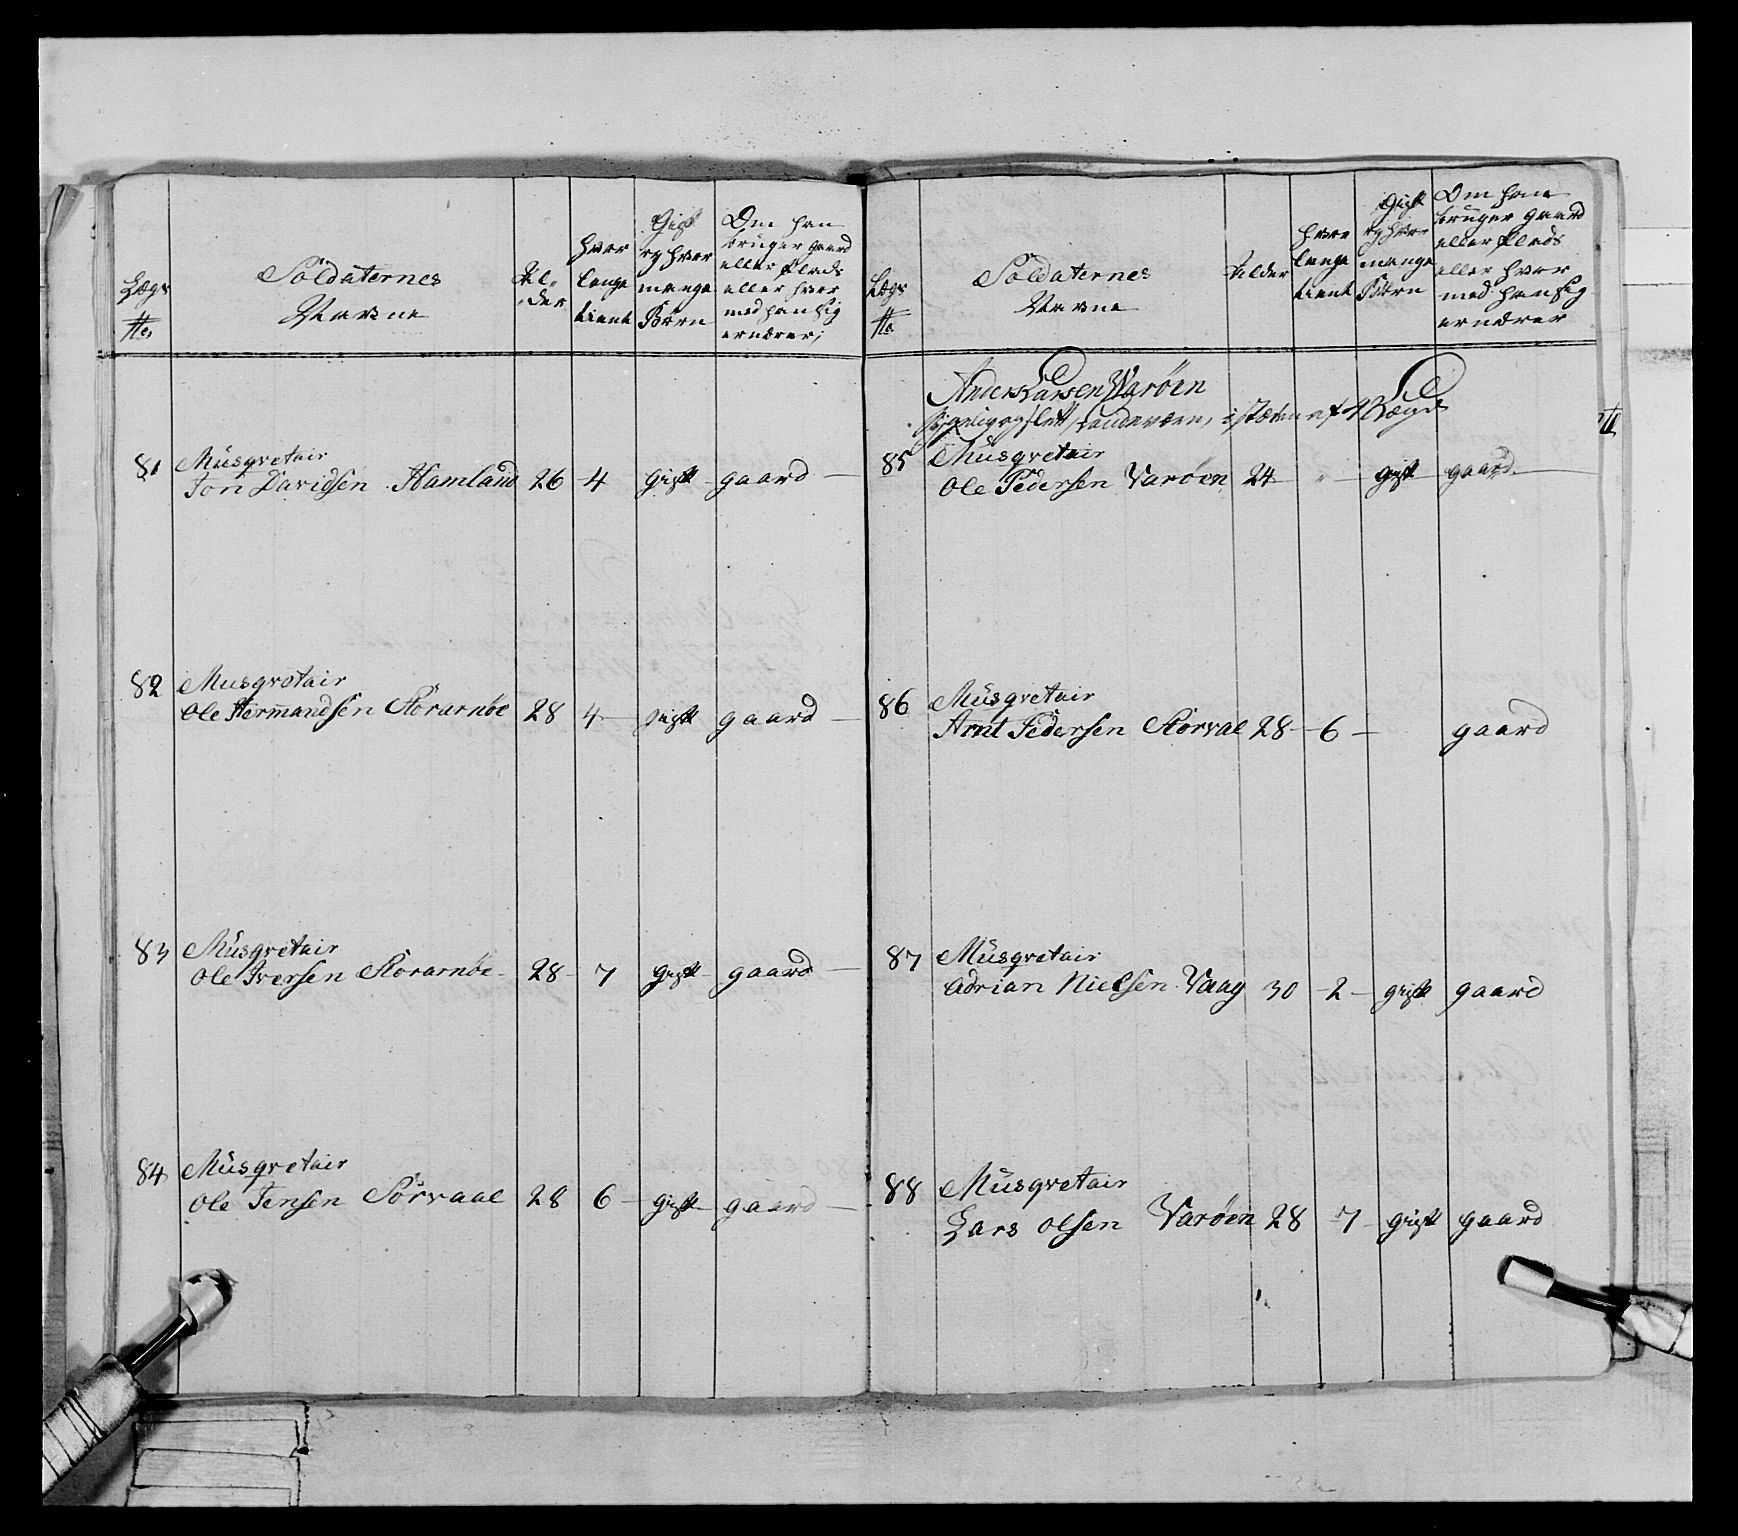 Lægs
No
Soldaternes
Navne
Al-
der
hvor
længe
tient
Gift
og hvor
mange
Börn
Om han
bruger gaard
eller Plads
eller hvor
med han sig
ernærer;
81 Musqvetair
Jon Davidsen Hamland 26 4 gift gaard
82 Musqvetair
Ole Hermandsen Storarnöe 28 4 gift gaard
83 Musqvetair
Ole Iversen Storarnöe 28 7 gift gaard
84 Musqvetair
Ole Jensen Sörvaae 28 6 gift gaard
Lægs
No
Soldaternes
Navne
Alder
hvor
længe
tient
Gift
og hvor
mange
Börn
Om han
bruger gaard
eller Plads
eller hvor
med han sig
ernærer
Anders Larsen Waröen
Landeværn, i stæden af
85 Musqvetair
Ole Pedersen Varöen 24 " gift gaard
86 Musqvetair
Arnt Pedersen Storvae 28 6 gaard
87 Musqvetair
Adrian Nielsen Vaag 30 2 gift gaard
88 Musqvetair
Lars Olsen Varöen 28 7 gift gaard